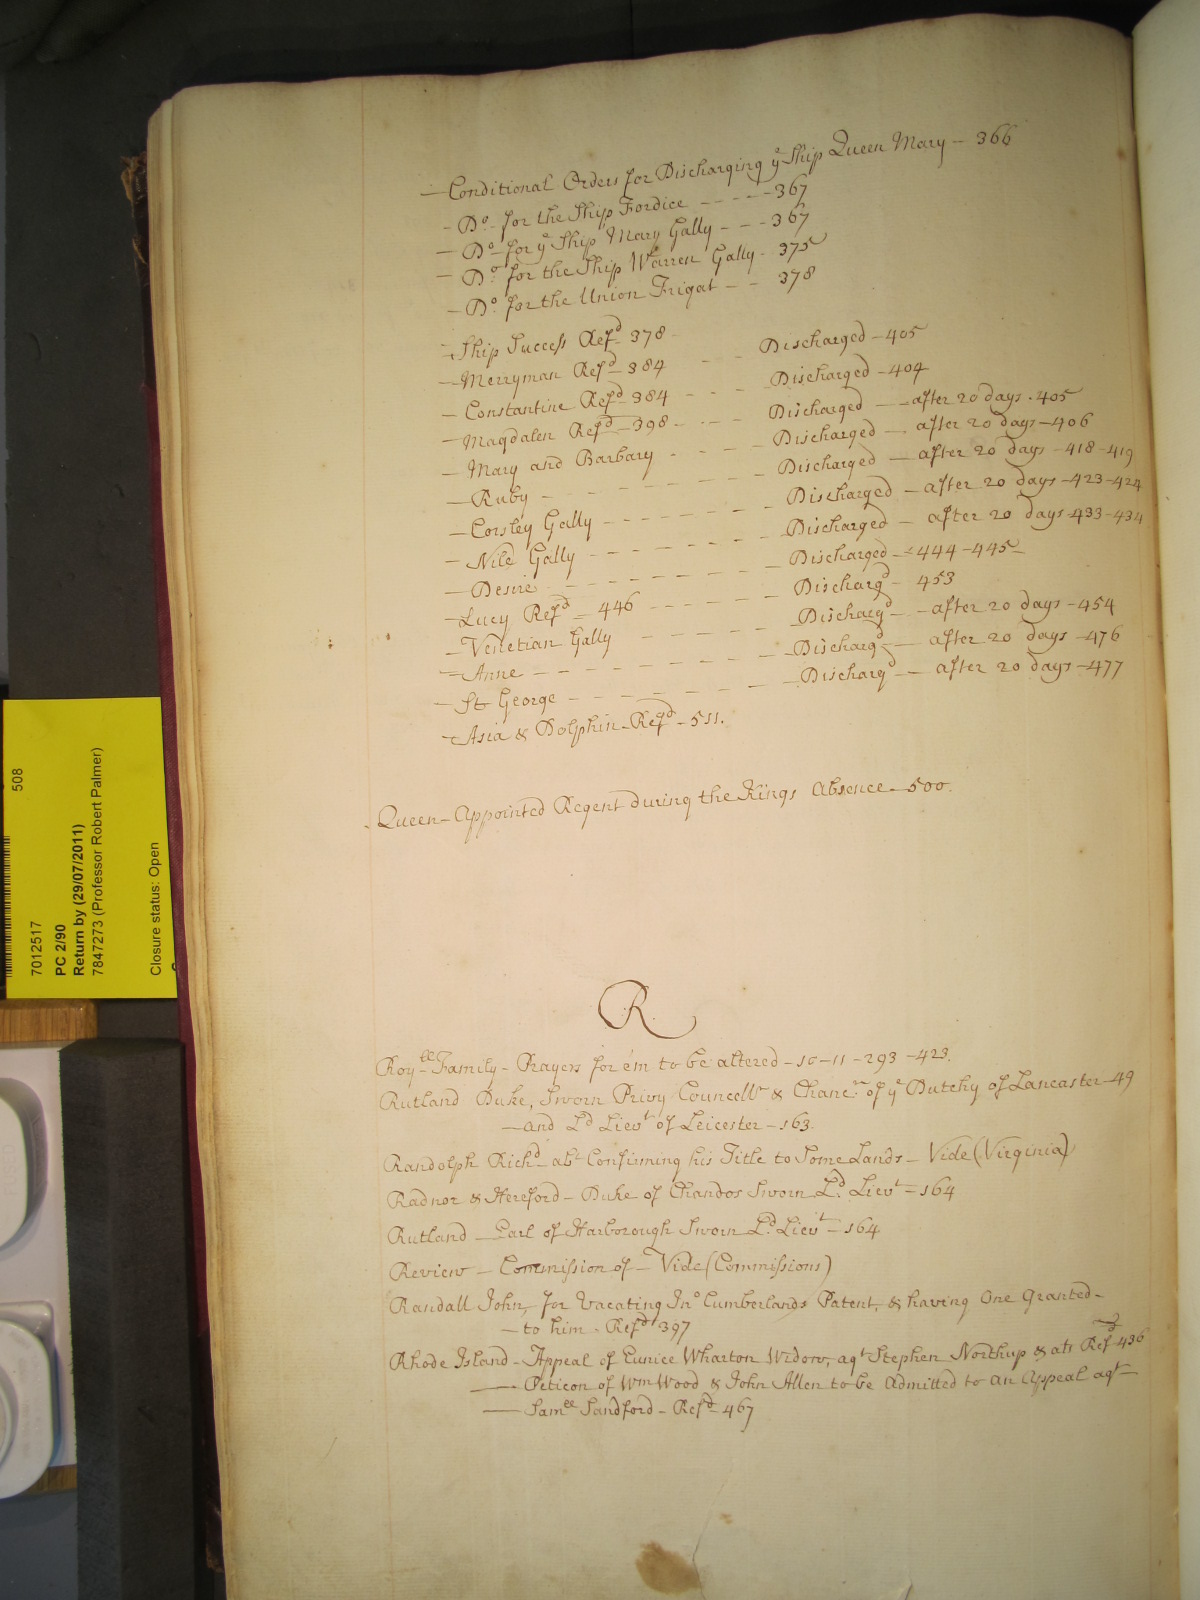 —Conditional Orders for Discharging yᵉ Ship Queen Mary — 366
- Dᵒ for the Ship Fordice - - - - - 367
— Dᵒ for yᵉ Ship Mary Gally - - - 367
— Dᵒ for the Ship Warren Gally - 375
— Dᵒ for the Union Frigat - - 378
- Ship Success Refᵈ 378 -
— Merryman Refᵈ 384 - - Discharged — 405
— Constantine Refᵈ 384 - - - Discharged — 404
— Magdalen Refᵈ — 398 - - - - Discharged — after 20 days . 405
— Mary and Barbary - - - - Discharged — after 20 days — 406
— Ruby - - - - - - - - Discharged — after 20 days — 418 - 419
— Corsley Gally - - - - - - Discharged — after 20 days — 423 - 424
— Nile Gally - - - - - - - Discharged — after 20 days - 433 - 434
— Desire - - - - - - - - Discharged — 444 - 445 -
— Lucy Refᵈ — 446 - - - - - Dischargᵈ - 453
— Venetian Gally - - - - - Dischargᵈ — after 20 days — 454
— Anne - - - - - - - - Dischargᵈ — after 20 days — 476
- St George - - - - - - - Dischargᵈ — after 20 days — 477
— Asia & Dolphin - Refᵈ - 511.
Queen — Appointed Regent during the Kings Absence — 500.
R
Royˡˡ Family — Prayers for em to be altered — 10 - 11 - 293 - 423.
Rutland Duke, Sworn Privy Councellʳ & Chancʳ of yᵉ Dutchy of Lancaster — 49
— and Lᵈ Lievᵗ of Leicester — 163.
Randolph Richᵈ — abᵗ Confirming his Title to Some Lands — Vide (Virginia)
Radnor & Hereford — Duke of Chandos Sworn Lᵈ Lievᵗ — 164
Rutland — Earl of Harborough Sworn Lᵈ Lievᵗ — 164
Review — Commission of — Vide (Commissions)
Randall John, for Vacating Jnᵒ Cumberlands Patent, & having One Granted -
— to him - Refᵈ 397
Rhode Island — Appeal of Eunice Wharton Widow, agᵗ Stephen Northup & als Refᵈ 436
— Peticon of Wm Wood & John Allen to be Admitted to an Appeal agᵗ —
— Samˡˡ Sandford — Refᵈ 467
508
7012517
PC 2/90
Return by (29/07/2011)
7847273 (Professor Robert Palmer)
Closure status: Open